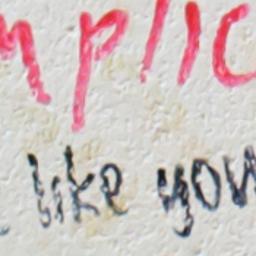 mplic
like you